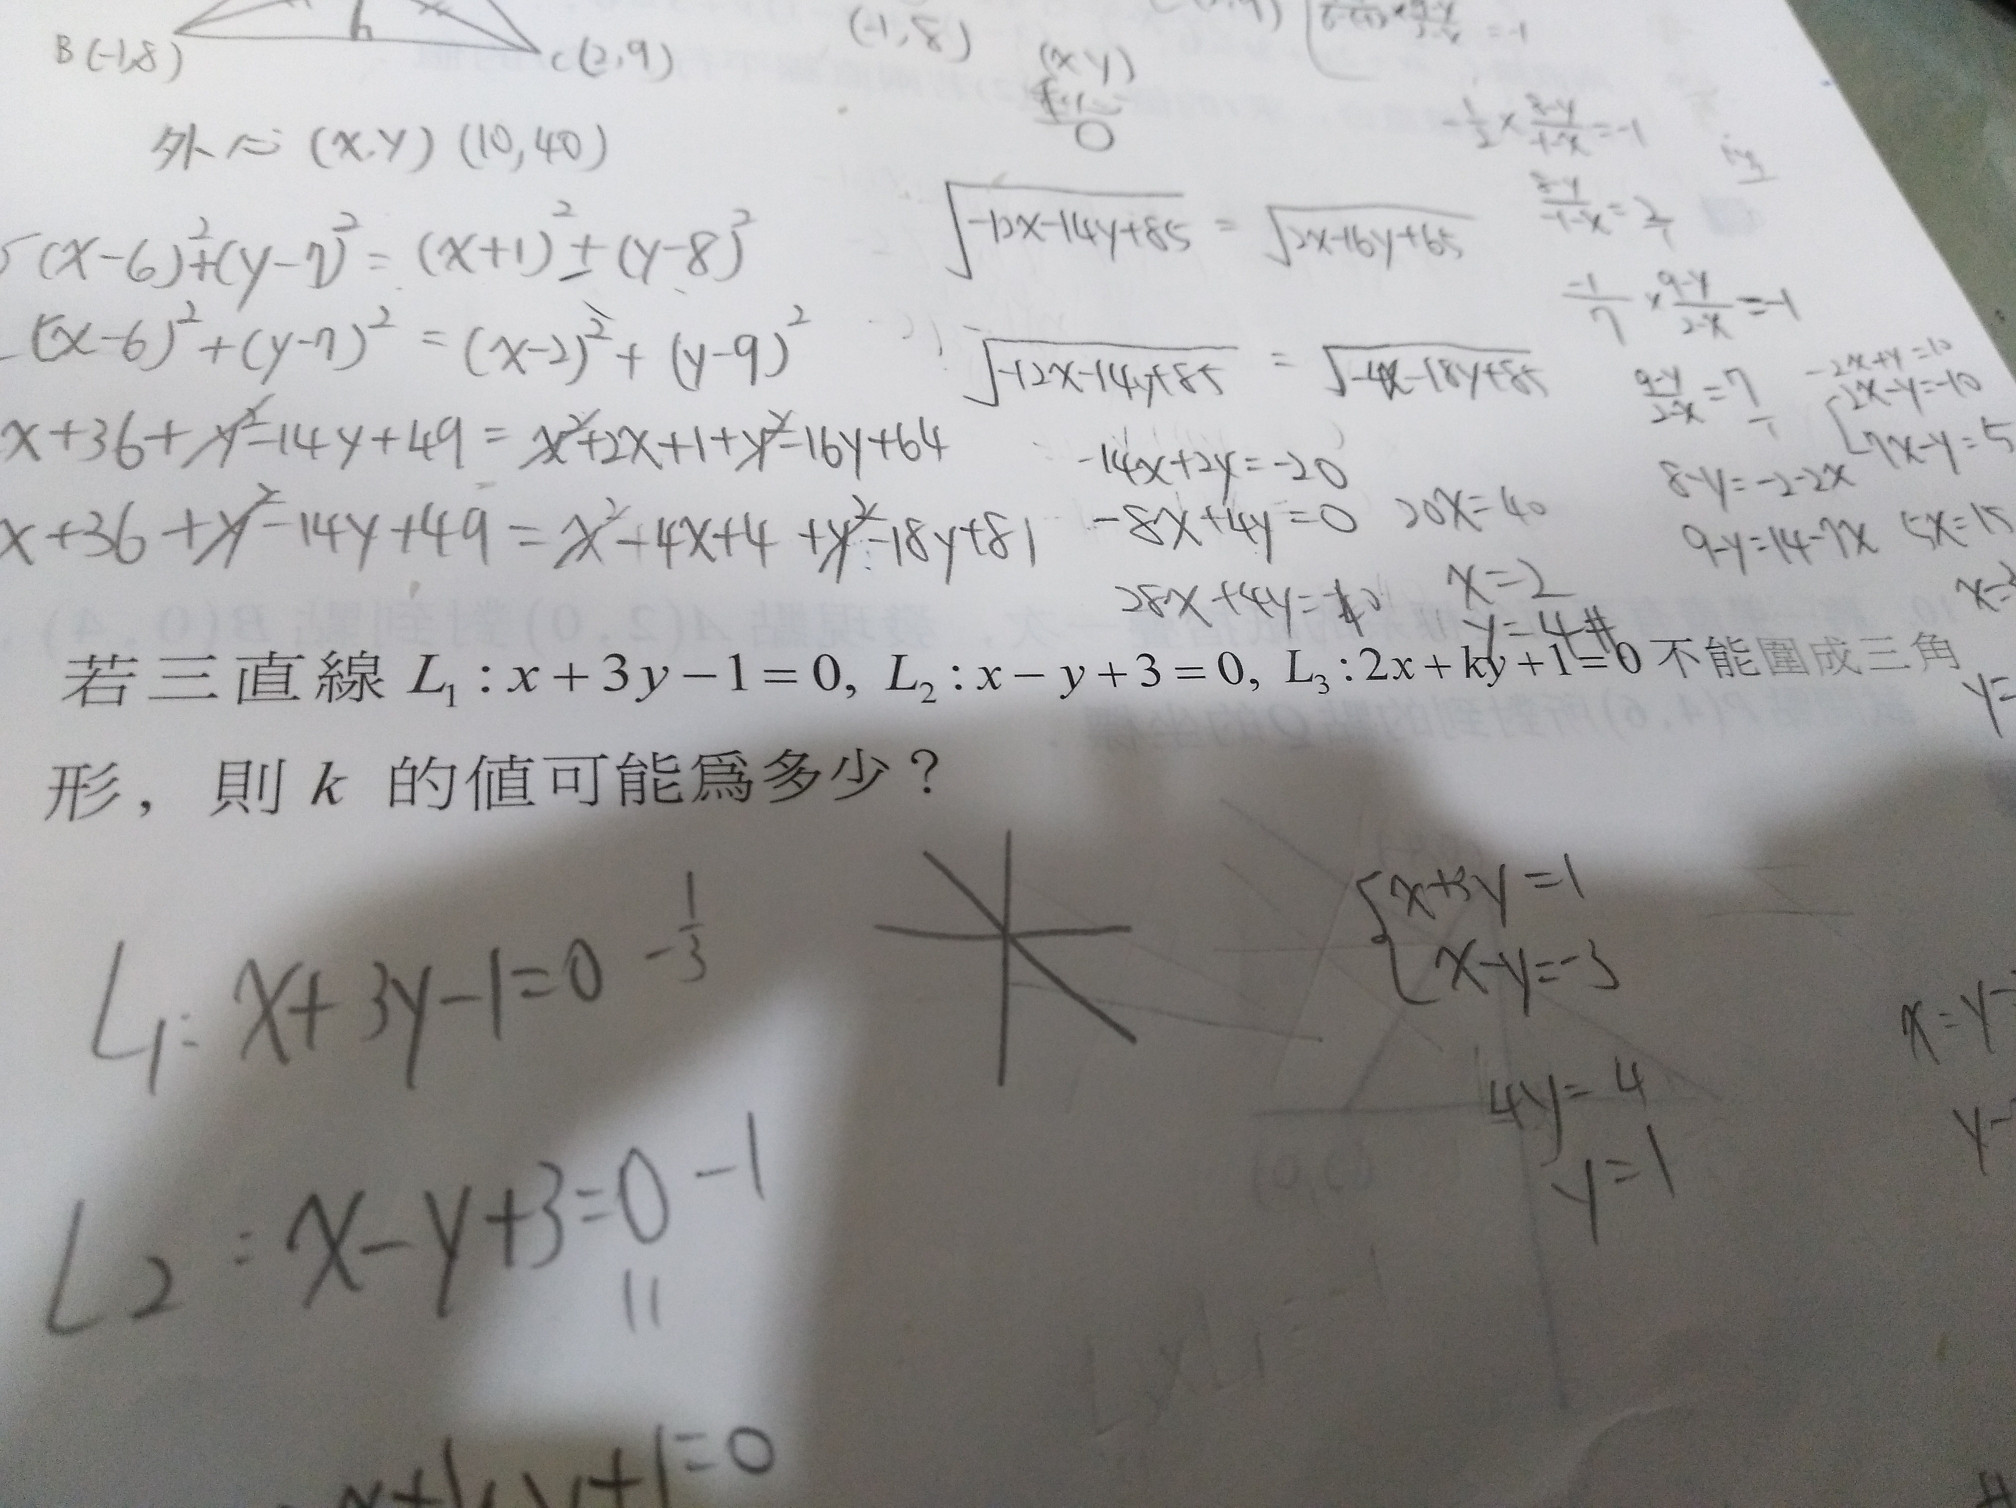 B(-1,8)
C(2,9)
(-1,8)
(x y)
外心 (x.y) (10,40)
(x-6)²+(y-7)² = (x+1)²+(y-8)²
(x-6)²+(y-7)² = (x-2)²+(y-9)²
x+36+y²-14y+49 = x²+2x+1+y²-16y+64
x+36+y²-14y+49 = x²-4x+4+y²-18y+81
√-12x-14y+85 = √2x-16y+65
√-12x-14y+85 = √-4x-18y+85
-14x+2y=-20
-8x+4y=0 20x=40
x=2
y=4#
-1/2 × 8-y/-1-x = -1
8-y/-1-x = 2/1
-1/7 × 9-y/2-x = -1
9-y/2-x = 7/1
-2x+y=10
2x-y=-10
7x-y=5
8-y=-2-2x
9-y=14-7x
若三直線 L₁ : x + 3y − 1 = 0, L₂ : x − y + 3 = 0, L₃ : 2x + ky + 1 = 0 不能圍成三角
形，則 k 的值可能為多少？
L₁: x+3y-1=0 -1/3
L₂: x-y+3=0 -1
{x+3y=1
x-y=-3
4y=4
y=1